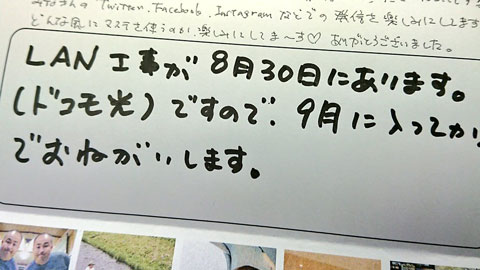 Twitter、Facebook、Instagramなどでの発信を楽しみにしてます
どんな風にマステを使うのか、楽しみにしてま〜す♡ ありがとうございました。
LAN工事が8月30日にあります。
(ドコモ光)ですので、9月に入ってか
でおねがいします。